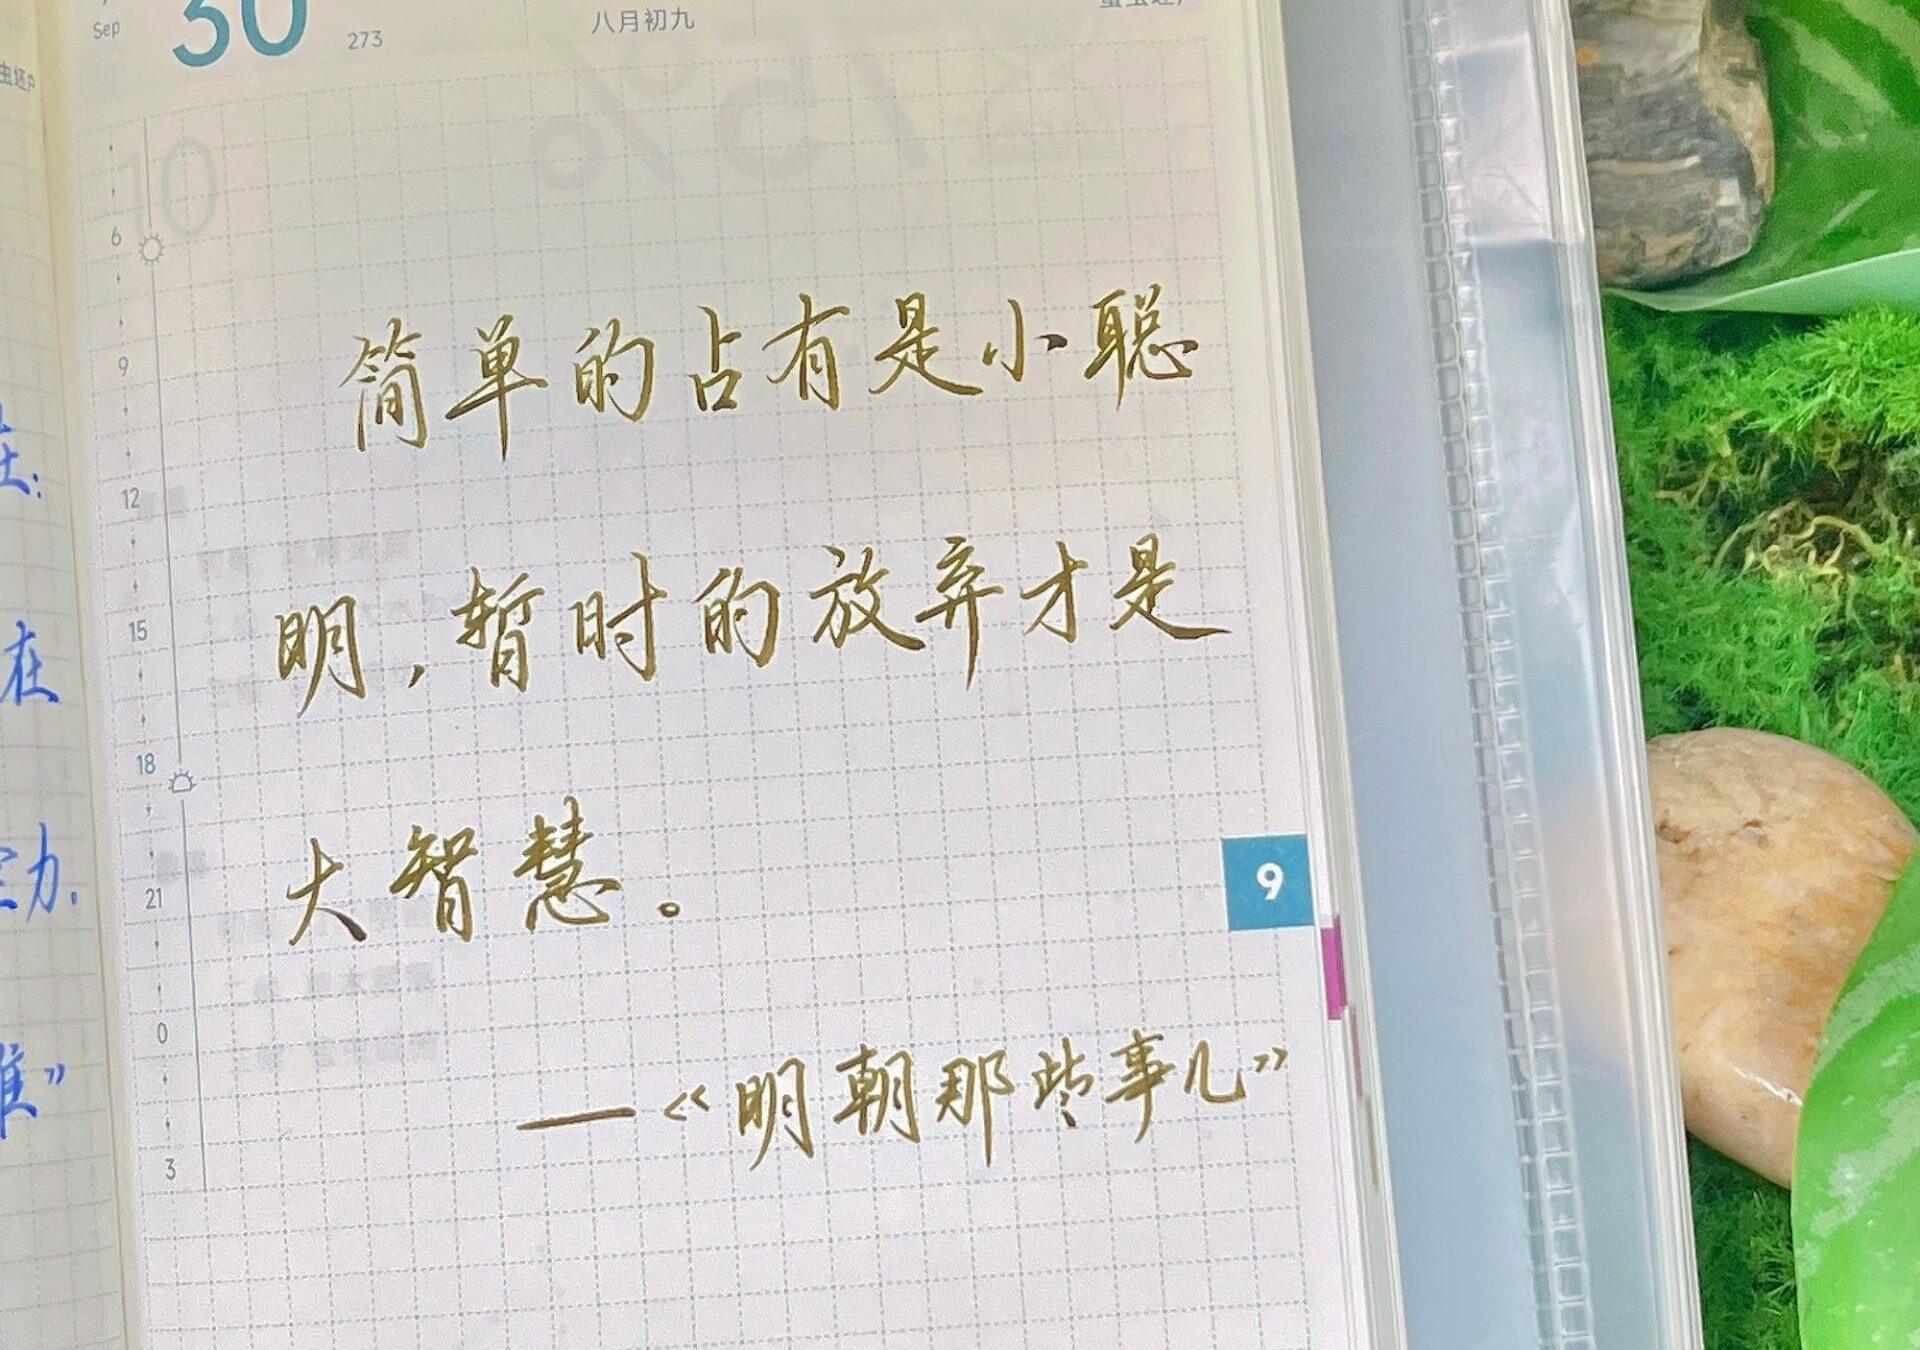 Sep
30
273
八月初九
10
6
9
12
15
18
21
0
3
简单的占有是小聪
明，暂时的放弃才是
大智慧。
—《明朝那些事儿》
9
在
力.
”